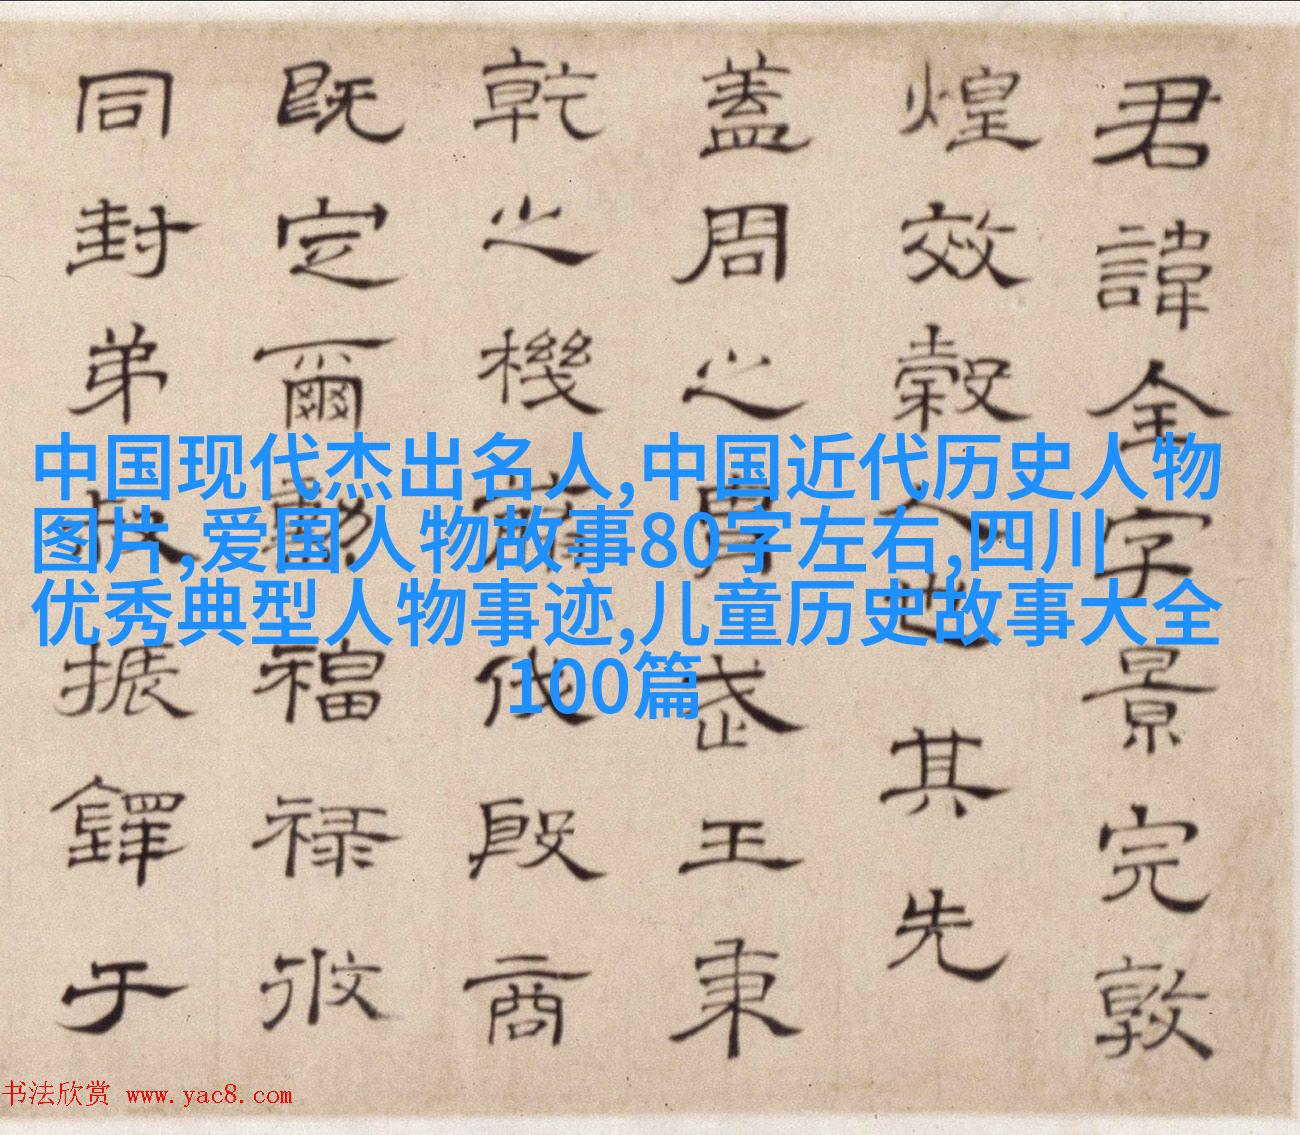 君諱全字景完敦
煌效穀人也其先
蓋周之胄武王秉
乾之機翦伐殷商
既定爾勳福禄攸
同封弟叔振鐸于
中国现代杰出名人,中国近代历史人物
图片,爱国人物故事80字左右,四川
优秀典型人物事迹,儿童历史故事大全
100篇
书法欣赏 www.yac8.com